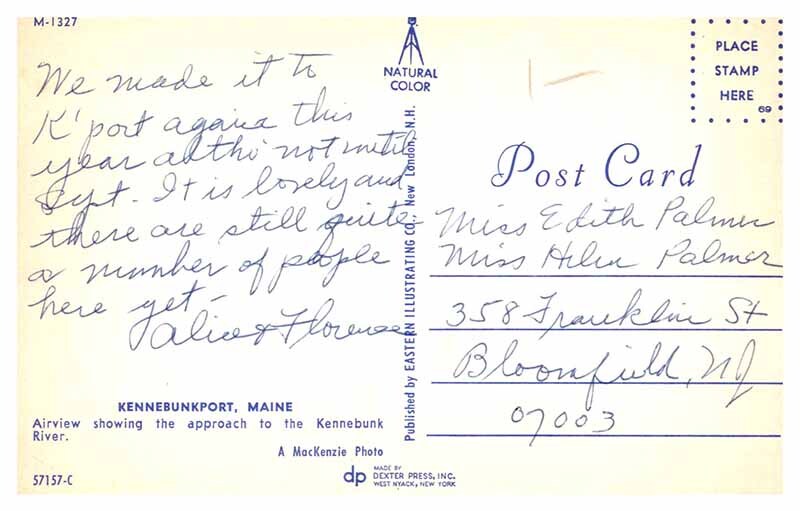 M-1327
We made it to
K'port again this
year altho' not until
Sept. It is lovely and
there are still quite
a number of people
here yet –
Alice & Florence
KENNEBUNKPORT, MAINE
Airview showing the approach to the Kennebunk
River.
A MacKenzie Photo
57157-C
NATURAL
COLOR
Published by EASTERN ILLUSTRATING CO., New London, N.H.
dp
MADE BY
DEXTER PRESS, INC.
WEST NYACK, NEW YORK
PLACE
STAMP
HERE
69
Post Card
Miss Edith Palmer
Miss Helen Palmer
358 Franklin St
Bloomfield, NJ
07003